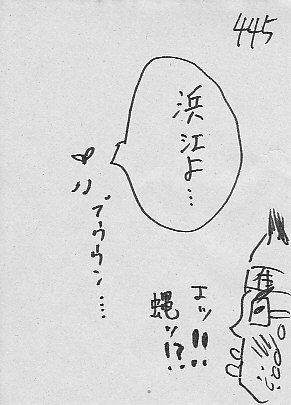 445
浜江よ…
ブウウン……
エッ!!
蝿ッ!?